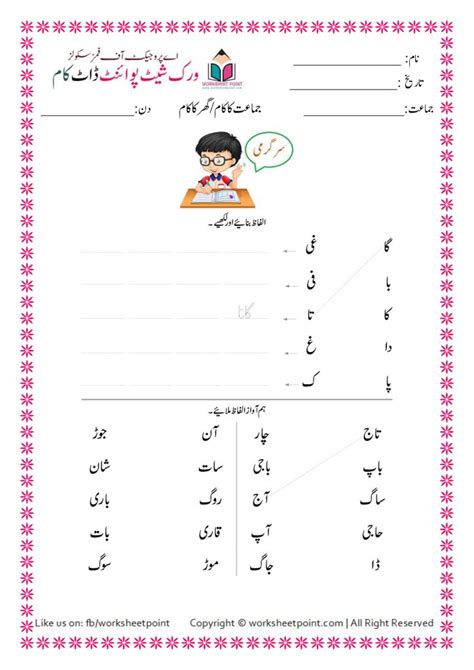 نام:
اے پروجیکٹ آف فمز سکولز
ورک شیٹ پوائنٹ ڈاٹ کام
WORKSHEET POINT
www.worksheetpoint.com
تاریخ:
جماعت: جماعت کا کام/گھر کا کام دن:
سرگرمی
الفاظ بنائیے اور لکھیے۔
گا غی
با فی
کا تا گاتا
دا غ
پا ک
ہم آواز الفاظ ملائیے۔
تاج چار آن جوڑ
باپ باجی سات شان
ساگ آج روگ باری
حاجی آپ قاری بات
ڈا جاگ موڑ سوگ
Like us on: fb/worksheetpoint Copyright © worksheetpoint.com | All Right Reserved